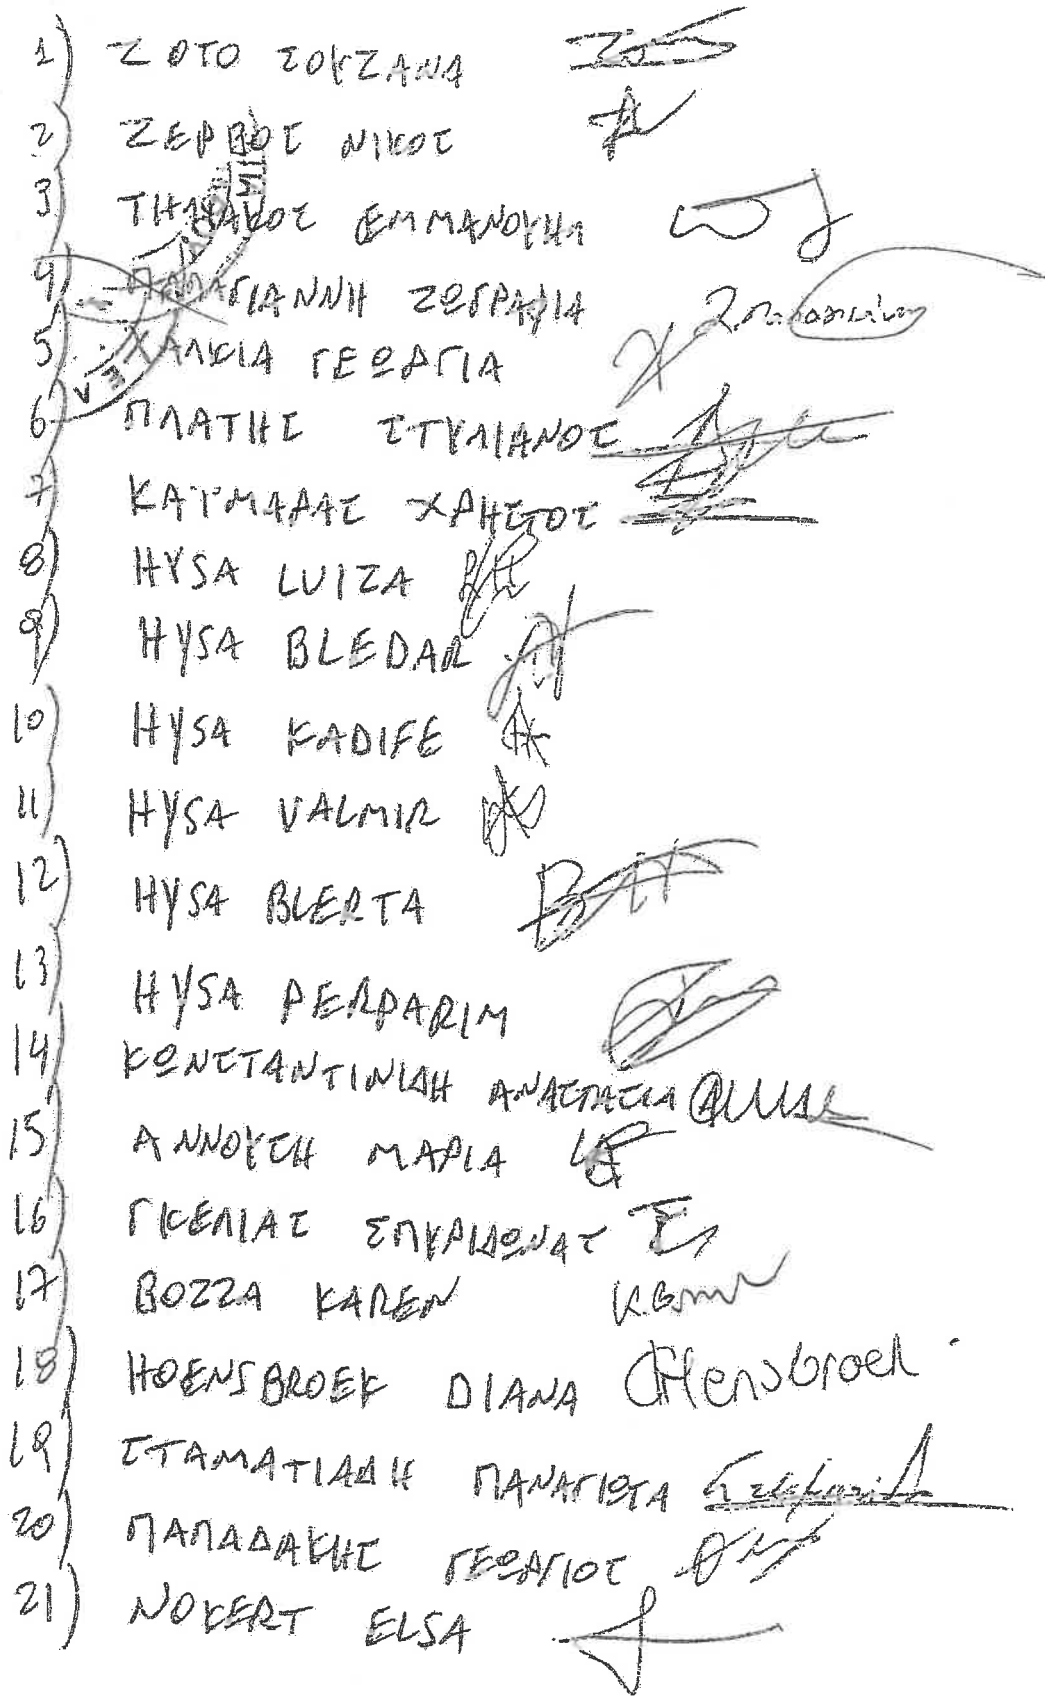 1) ΖΟΤΟ ΣΟΥΖΑΝΑ
2) ΖΕΡΒΟΣ ΝΙΚΟΣ
3) ΕΜΜΑΝΟΥΗΛ
4) ΠΑΠΑΓΙΑΝΝΗ ΖΩΓΡΑΦΙΑ
5) ΧΑΛΚΙΑ ΓΕΩΡΓΙΑ
6) ΠΛΑΤΗΣ ΣΤΥΛΙΑΝΟΣ
7) ΧΡΗΣΤΟΣ
8) HYSA LUIZA
9) HYSA BLEDAR
10) HYSA KADIFE
11) HYSA VALMIR
12) HYSA BLERTA
13) HYSA PERPARIM
14) ΚΩΝΣΤΑΝΤΙΝΙΔΗ ΑΝΑΣΤΑΣΙΑ
15) ΑΝΝΟΥΣΗ ΜΑΡΙΑ
16) ΓΚΕΛΙΑΣ ΣΠΥΡΙΔΩΝΑΣ
17) BOZZA KAREN
18) HOENSBROEK DIANA
19) ΣΤΑΜΑΤΙΑΔΗ ΠΑΝΑΓΙΩΤΑ
20) ΠΑΠΑΔΑΚΗΣ ΓΕΩΡΓΙΟΣ
21) ELSA